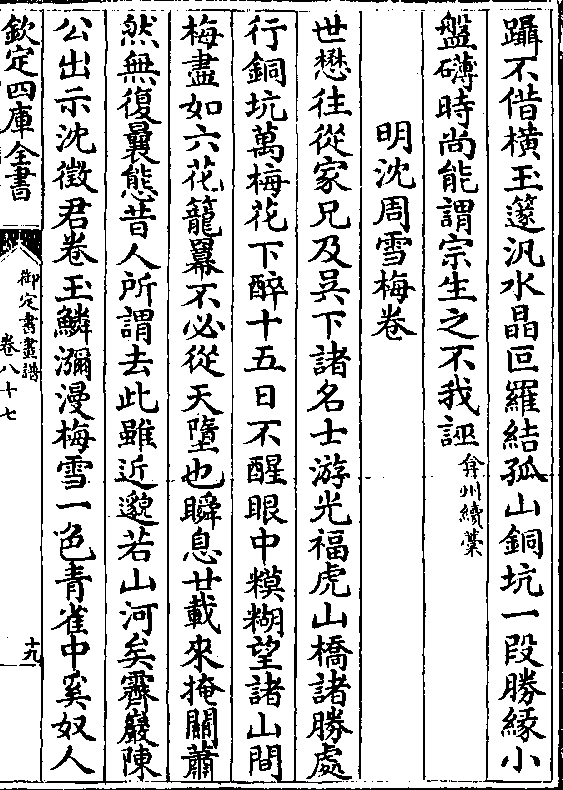 躡不偕橫玉篴汎水晶叵羅結孤山銅坑一段勝緣小
盤礴時尚能謂宗生之不我誣弇州續藁
明沈周雪梅卷
世懋往從家兄及吳下諸名士游光福虎山橋諸勝處
行銅坑萬梅花下醉十五日不醒眼中糢糊望諸山間
梅盡如六花籠羃不必從天墮也瞬息廿載來掩關蕭
然無復曩態昔人所謂去此雖近邈若山河矣霽巖陳
公出示沈徵君卷玉鱗瀰漫梅雪一色青雀中奚奴人
欽定四庫全書
御定書畫譜
卷八十七
十九